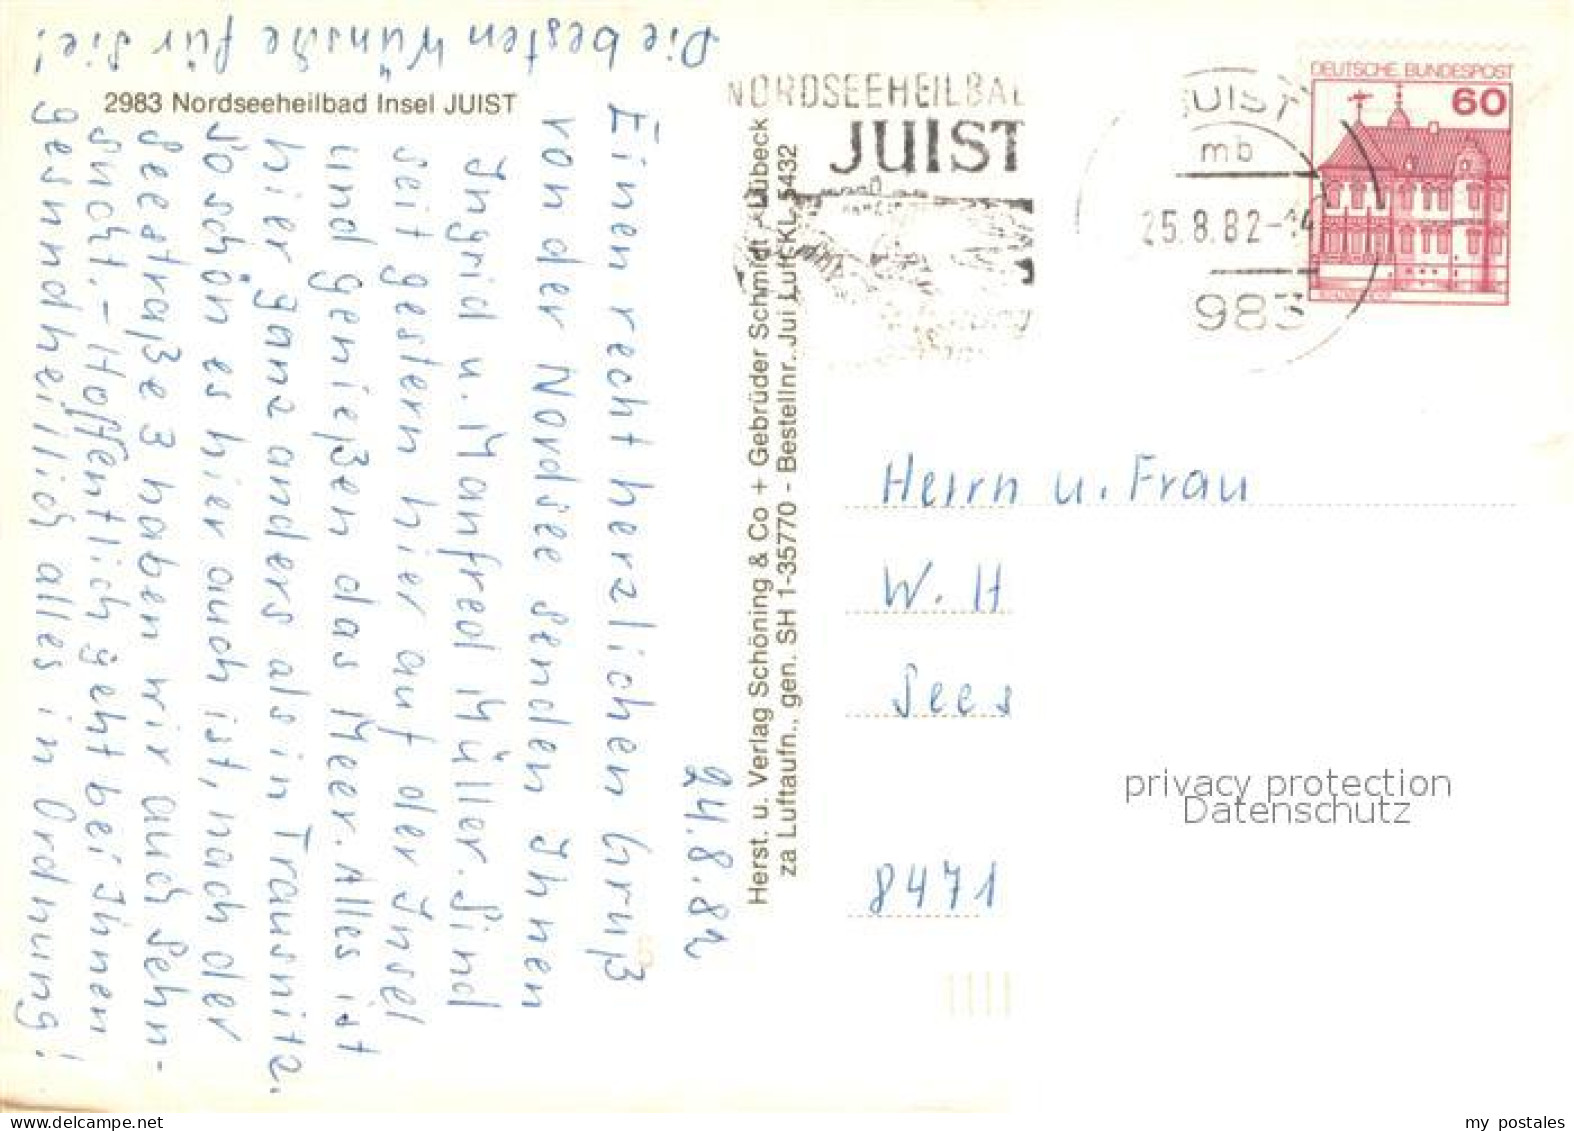 2983 Nordseeheilbad Insel JUIST
24.8.82
Einen recht herzlichen Gruß
von der Nordsee senden Ihnen
Ingrid u. Manfred Müller. Sind
seit gestern hier auf der Insel
und genießen das Meer. Alles ist
hier ganz anders als in Trausnitz.
So schön es hier auch ist, nach der
Seestraße 3 haben wir auch Sehn-
sucht. - Hoffentlich geht bei Ihnen
gesundheitlich alles in Ordnung!
Die besten Wünsche für Sie!
Herst. u. Verlag Schöning & Co + Gebrüder Schmidt Lübeck
za Luftaufn., gen. SH 1-35770 - Bestellnr. Jui Luft KL 5432
NORDSEEHEILBAD
JUIST
JUIST
mb
25.8.82-14
983
DEUTSCHE BUNDESPOST
60
Herrn u. Frau
W. H
Sees
8471
privacy protection
Datenschutz
my postales